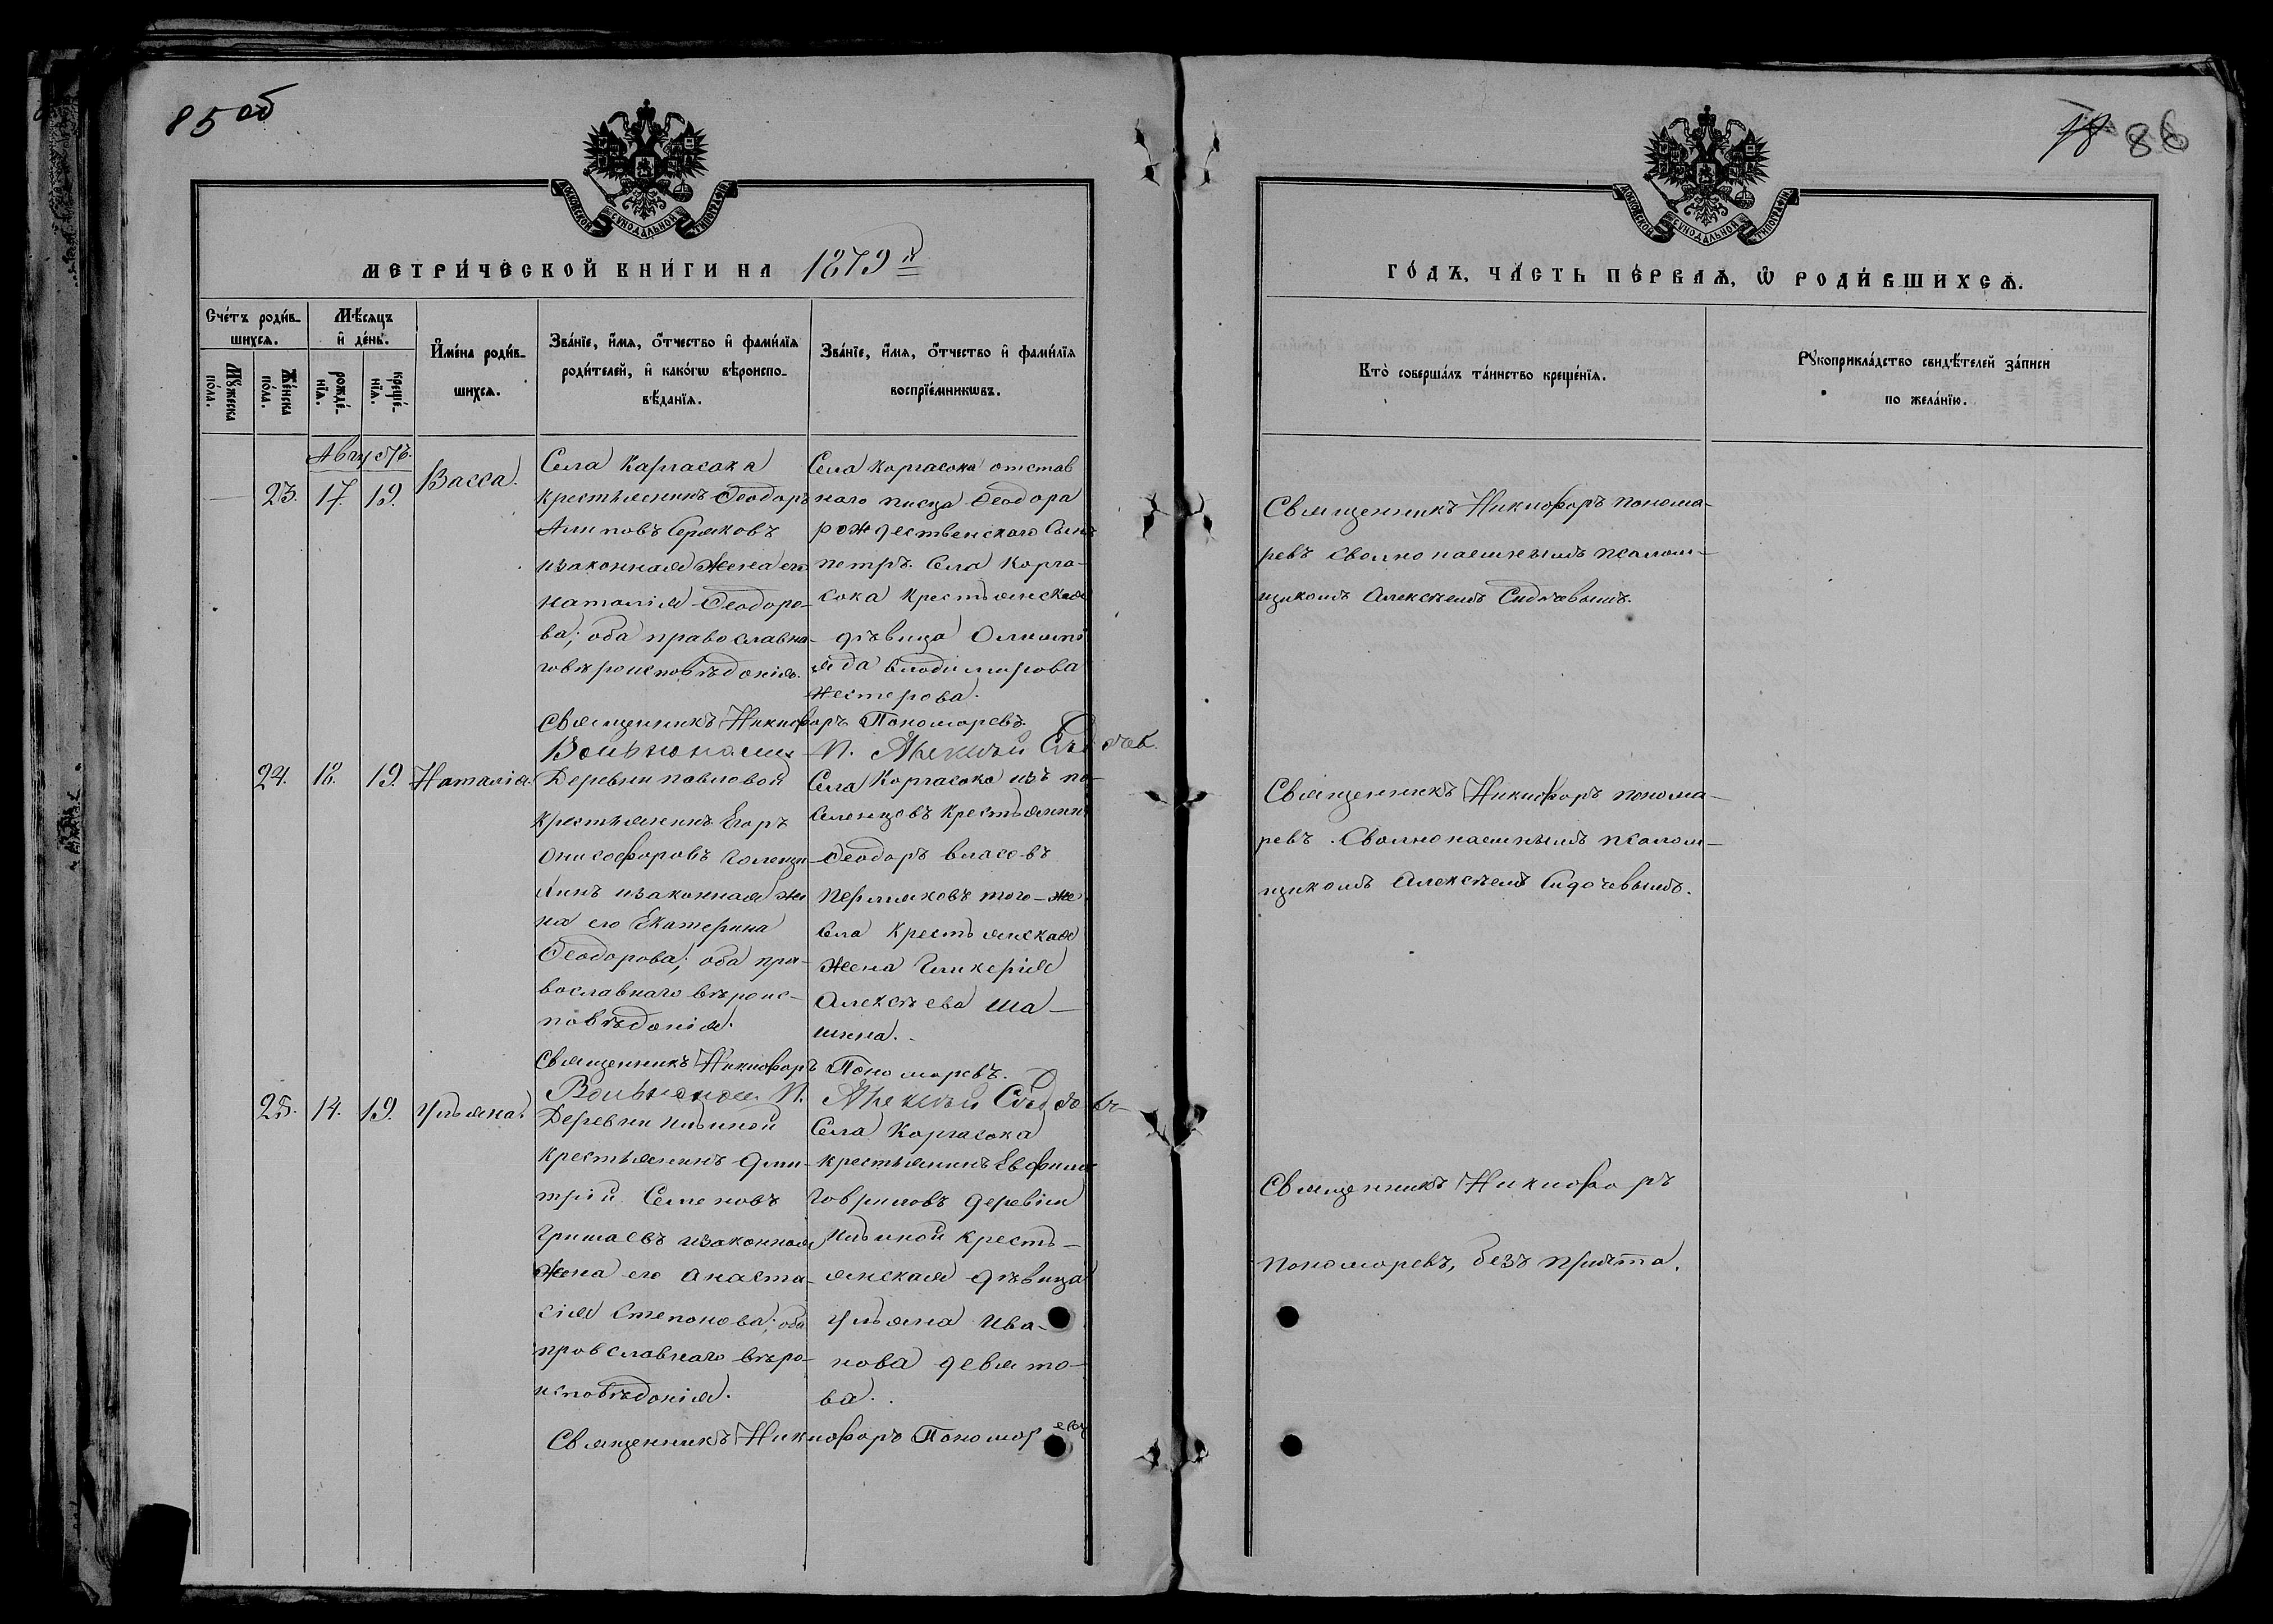 85 об
МОСКОВСКОЙ СѴНОДАЛЬНОЙ ТИПОГРАФІИ
МЕТРИ́ЧЕСКОЙ КНИ́ГИ НА 1879й
Сче́тъ роди́в-
шихсѧ.
Мѣ́сѧцъ
и҆ де́нь.
Мꙋ́жеска по́ла.
Же́нска по́ла.
рожде́-нїѧ.
креще́-нїѧ.
И҆мена̀ роди́в-
шихсѧ.
Зва́нїе, и҆́мѧ, ѻ҆́тчество и҆ фами́лїѧ
роди́телей, и҆ како́гѡ вѣроиспо-
вѣ́данїѧ.
Зва́нїе, и҆́мѧ, ѻ҆́тчество и҆ фами́лїѧ
воспрїе́мникѡвъ.
Августъ.
23. 17. 19. Васса.
Села Каргасока
крестьянинъ Ѳеодоръ
Серяковъ
изаконная жена его
Наталія Ѳеодоро-
ва; оба православна-
говѣроисповѣданія.
Села Каргасока отстав
наго писца Ѳеодора
рождественскаго Сынъ
петръ. Села Карга-
сока крестьянская
дѣвица Олимпі
яда Владимирова
Нестерова.
Священникъ Никифоръ Пономаревъ.
Вольнонаем П. Алексѣй
24. 18. 19. Наталія.
Деревни павловой
крестьянинъ Егоръ
Онисофоровъ Голещи-
хинъ изаконная же
на его Екатерина
Ѳеодорова; оба пра-
вославнаго вѣроис-
повѣданія.
Села Каргасока изъ по-
селенцевъ крестьянинъ
Ѳеодоръ власовъ
Пермяковъ того-же
села крестьянская
жена Гликерія
Алексѣева Ша-
нина.
Священникъ Никифоръ Пономаревъ.
Вольнонаем П. Алексѣй
25. 14. 19. Ульяна.
Деревни Ильиной
крестьянинъ Дми-
трій Семеновъ
Гришаевъ изаконная
жена его Анаста-
сія Степанова; оба
православнаго вѣро-
исповѣданія.
Села Каргасока
крестьянинъ Евфимъ
Гавриловъ деревни
Ильиной кресть-
янская дѣвица
Ульяна Ива-
нова девято-
ва.
Священникъ Никифоръ Пономаревъ
18 86
МОСКОВСКОЙ СѴНОДАЛЬНОЙ ТИПОГРАФІИ
ГО́ДЪ, ЧА́СТЬ ПЕ́РВАѦ, Ѽ РОДИ́ВШИХСѦ.
Кто̀ соверша́лъ та́инство креще́нїѧ.
Рꙋкоприкла́дство свидѣ́телей за́писи
по жела́нїю.
Священникъ Никифоръ понома-
ревъ сволнонаемнымъ псалом-
щикомъ Алексѣемъ Сидачевымъ.
Священникъ Никифоръ понома-
ревъ. Сволнонаемнымъ псалом-
щикомъ Алексѣемъ Сидачевымъ.
Священникъ Никифоръ
пономаревъ, безъ причта.